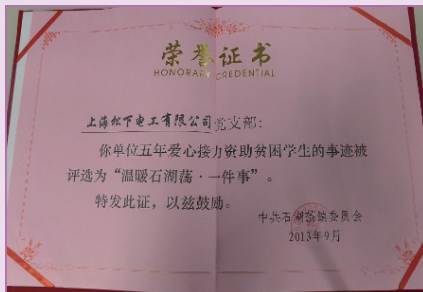 荣誉证书
HONORARY CREDENTIAL
上海松下电工有限公司党支部:
你单位五年爱心接力资助贫困学生的事迹被
评选为“温暖石湖荡·一件事”。
特发此证,以兹鼓励。
中共石湖荡镇委员会
2013年9月